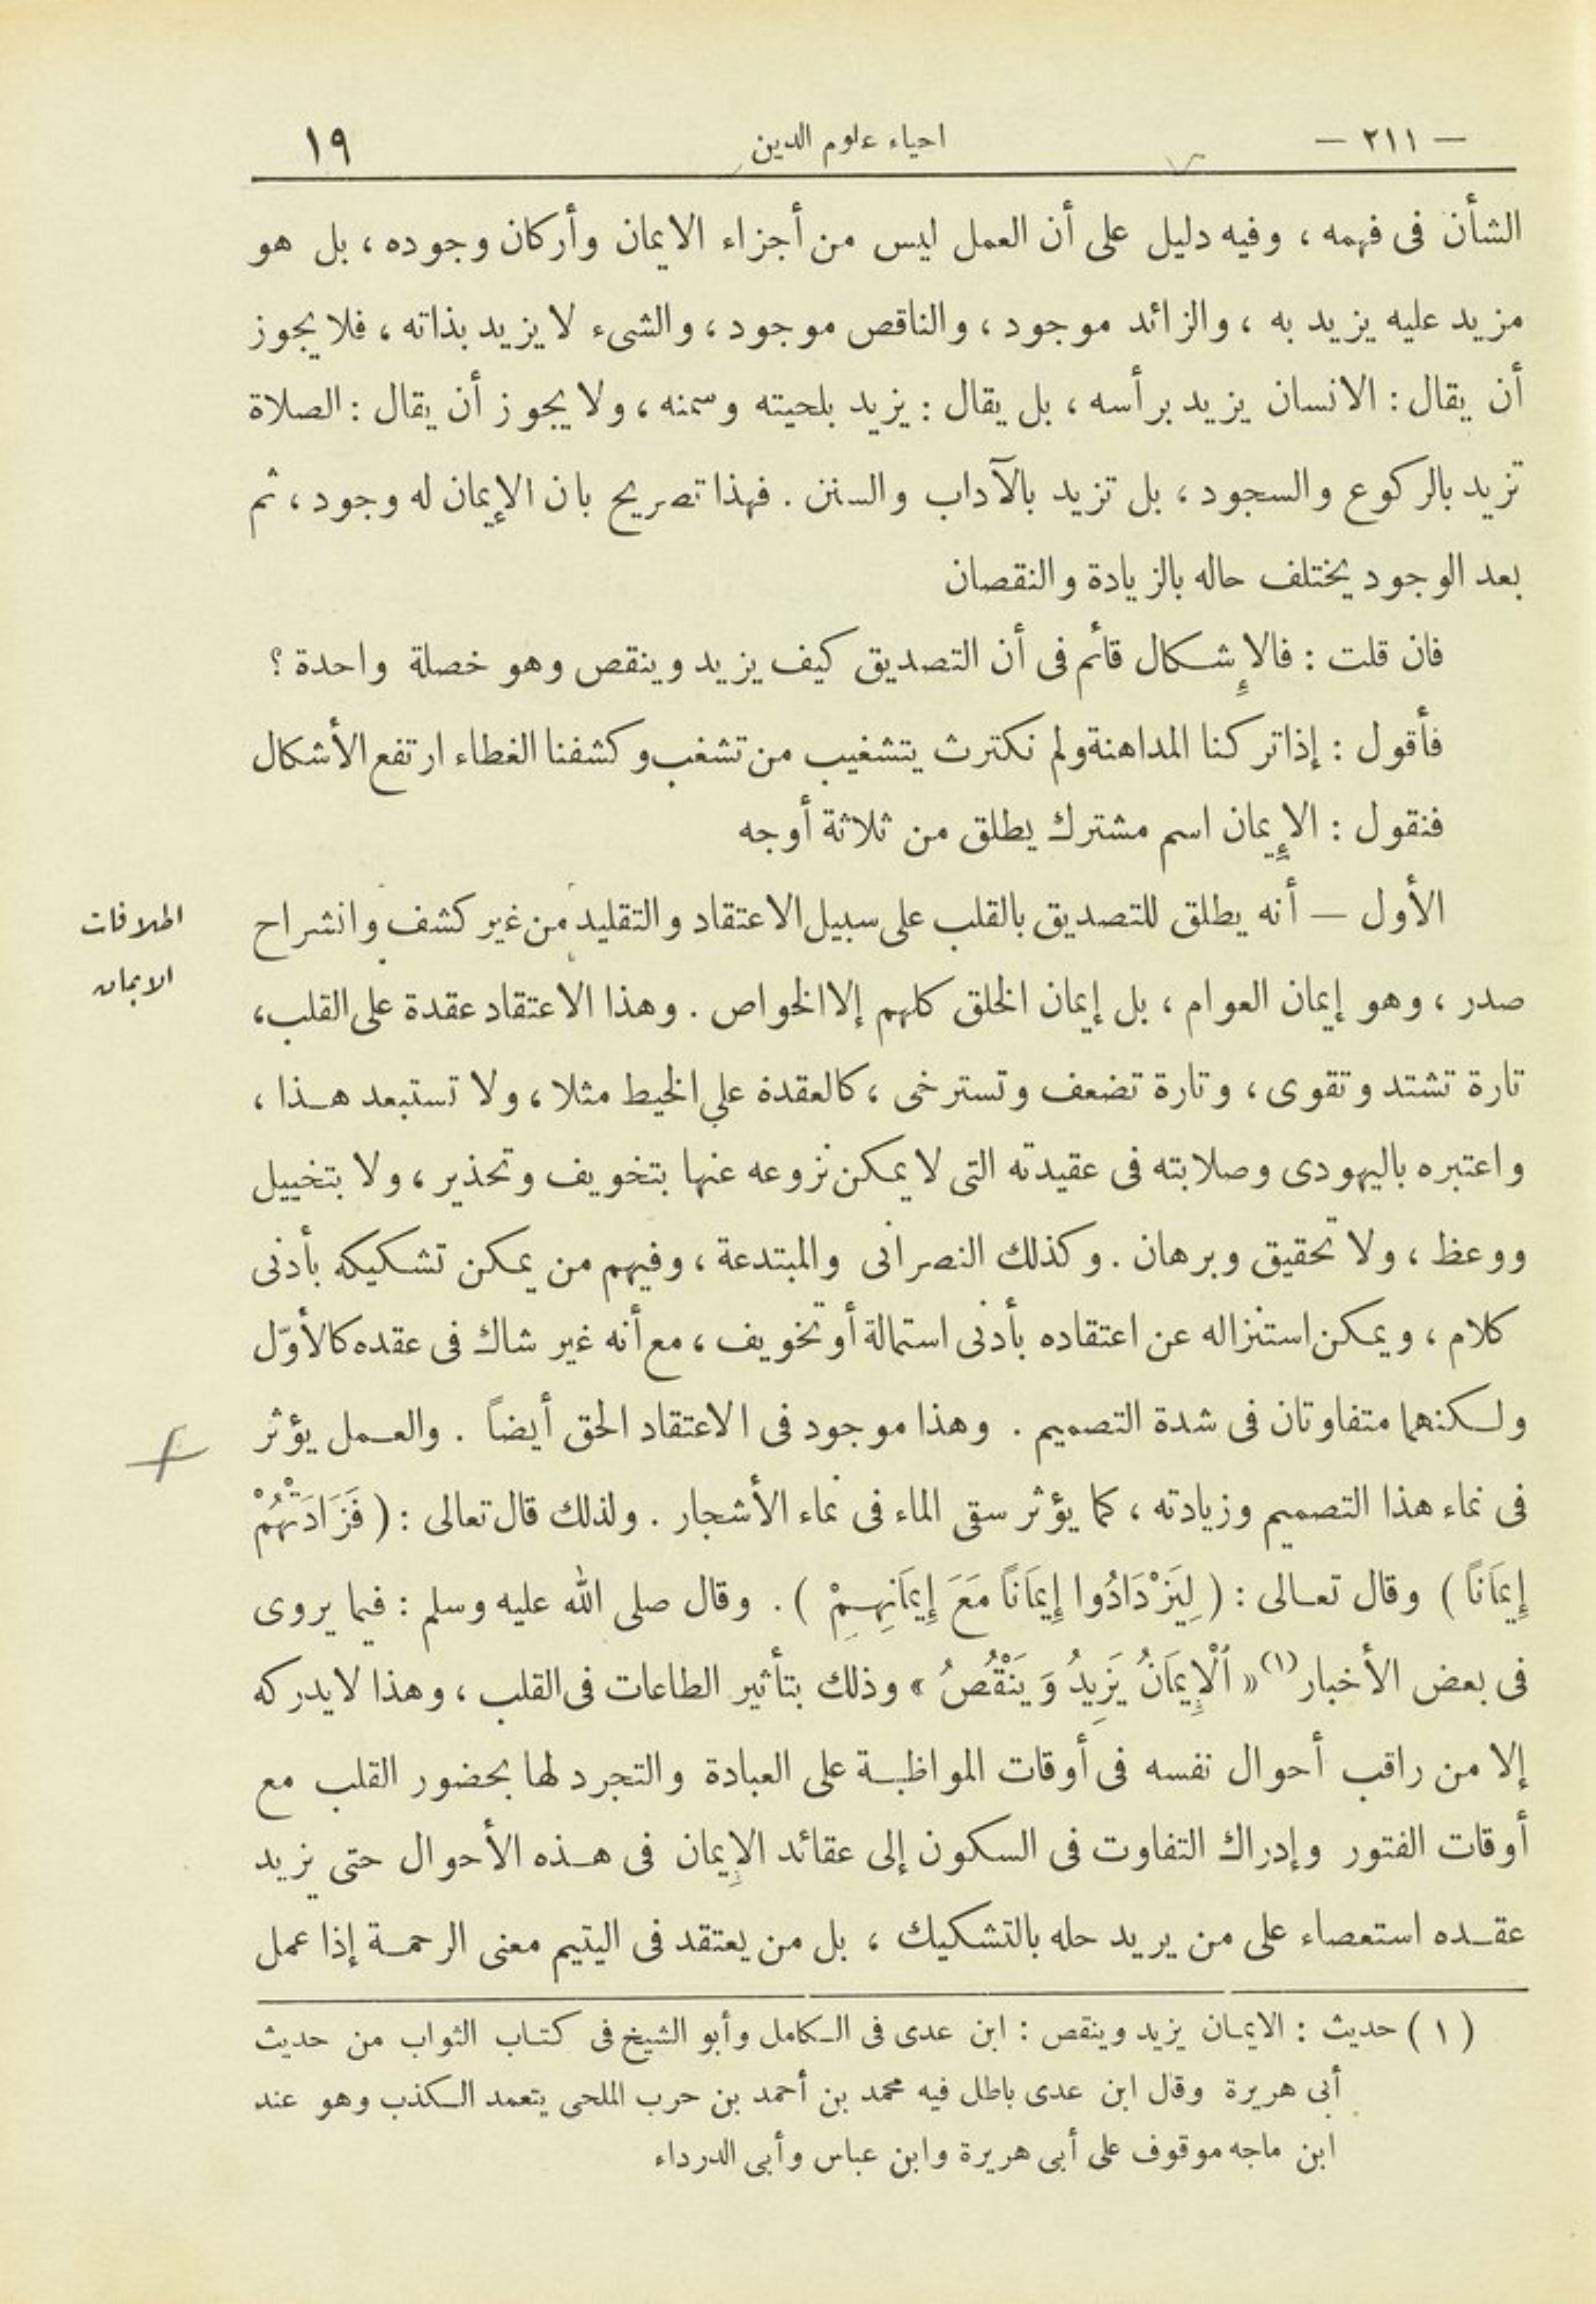 — ٢١١ — احياء علوم الدين ١٩
الشأن فى فهمه ، وفيه دليل على أن العمل ليس من أجزاء الايمان وأركان وجوده ، بل هو
مزيد عليه يزيد به ، والزائد موجود ، والناقص موجود ، والشىء لا يزيد بذاته ، فلا يجوز
أن يقال : الانسان يزيد برأسه ، بل يقال : يزيد بلحيته وسمنه ، ولا يجوز أن يقال : الصلاة
تزيد بالركوع والسجود ، بل تزيد بالآداب والسنن . فهذا تصريح بان الإيمان له وجود ، ثم
بعد الوجود يختلف حاله بالزيادة والنقصان
فان قلت : فالإشكال قائم فى أن التصديق كيف يزيد وينقص وهو خصلة واحدة ؟
فأقول : إذا تركنا المداهنة ولم نكترث يتشغيب من تشغب وكشفنا الغطاء ارتفع الأشكال
فنقول : الإيمان اسم مشترك يطلق من ثلاثة أوجه
الأول – أنه يطلق للتصديق بالقلب على سبيل الاعتقاد والتقليد من غير كشف وانشراح
اطلاقات
الايمان
صدر ، وهو إيمان العوام ، بل إيمان الخلق كلهم إلا الخواص . وهذا الاعتقاد عقدة على القلب،
تارة تشتد وتقوى ، وتارة تضعف وتسترخى ، كالعقدة على الخيط مثلا ، ولا تستبعد هذا ،
واعتبره باليهودى وصلابته فى عقيدته التى لا يمكن نزوعه عنها بتخويف وتحذير ، ولا بتخييل
ووعظ ، ولا تحقيق وبرهان . وكذلك النصرانى والمبتدعة ، وفيهم من يمكن تشكيكه بأدنى
كلام ، ويمكن استنزاله عن اعتقاده بأدنى استمالة أو تخويف ، مع أنه غير شاك فى عقده كالأوّل
ولكنهما متفاوتان فى شدة التصميم . وهذا موجود فى الاعتقاد الحق أيضاً . والعمل يؤثر
فى نماء هذا التصميم وزيادته ، كما يؤثر سقى الماء فى نماء الأشجار . ولذلك قال تعالى : ( فَزَادَتْهُمْ
إِيمَانًا ) وقال تعالى : ( لِيَزْدَادُوا إِيمَانًا مَعَ إِيمَانِهِمْ ) . وقال صلى الله عليه وسلم : فيما يروى
فى بعض الأخبار (١) « ٱلْإِيمَانُ يَزِيدُ وَيَنْقُصُ » وذلك بتأثير الطاعات فى القلب ، وهذا لا يدركه
إلا من راقب أحوال نفسه فى أوقات المواظبة على العبادة والتجرد لها بحضور القلب مع
أوقات الفتور وإدراك التفاوت فى السكون إلى عقائد الإيمان فى هذه الأحوال حتى يزيد
عقده استعصاء على من يريد حله بالتشكيك ، بل من يعتقد فى اليتيم معنى الرحمة إذا عمل
( ١ ) حديث : الايمان يزيد وينقص : ابن عدى فى الكامل وأبو الشيخ فى كتاب الثواب من حديث
أبى هريرة وقال ابن عدى باطل فيه محمد بن أحمد بن حرب الملحى يتعمد الكذب وهو عند
ابن ماجه موقوف على أبى هريرة وابن عباس وأبى الدرداء